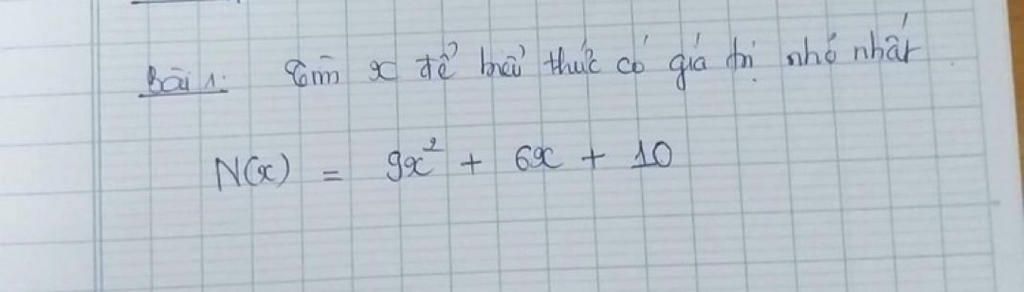 Bài 1: Tìm x để biểu thức có giá trị nhỏ nhất
N(x) = 9x² + 6x + 10